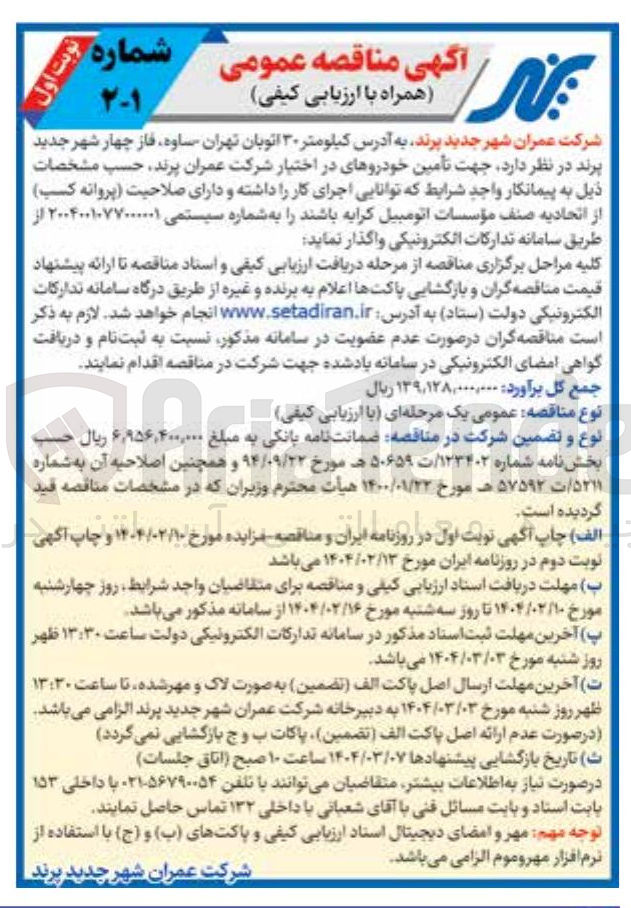 نوبت اول
شماره
۲-۱
آگهی مناقصه عمومی
(همراه با ارزیابی کیفی)
شرکت عمران شهر جدید پرند، به آدرس کیلومتر ۳۰ اتوبان تهران -ساوه، فاز چهار شهر جدید
پرند در نظر دارد، جهت تأمین خودروهای در اختیار شرکت عمران پرند، حسب مشخصات
ذیل به پیمانکار واجد شرایط که توانایی اجرای کار را داشته و دارای صلاحیت (پروانه کسب)
از اتحادیه صنف مؤسسات اتومبیل کرایه باشند را به‌شماره سیستمی ۲۰۰۴۰۰۱۰۷۷۰۰۰۰۰۱ از
طریق سامانه تدارکات الکترونیکی واگذار نماید:
کلیه مراحل برگزاری مناقصه از مرحله دریافت ارزیابی کیفی و اسناد مناقصه تا ارائه پیشنهاد
قیمت مناقصه‌گران و بازگشایی پاکت‌ها اعلام به برنده و غیره از طریق درگاه سامانه تدارکات
الکترونیکی دولت (ستاد) به آدرس: www.setadiran.ir انجام خواهد شد. لازم به ذکر
است مناقصه‌گران درصورت عدم عضویت در سامانه مذکور، نسبت به ثبت‌نام و دریافت
گواهی امضای الکترونیکی در سامانه یادشده جهت شرکت در مناقصه اقدام نمایند.
جمع کل برآورد: ۱۳۹,۱۲۸,۰۰۰,۰۰۰ ریال
نوع مناقصه: عمومی یک مرحله‌ای (با ارزیابی کیفی)
نوع و تضمین شرکت در مناقصه: ضمانت‌نامه بانکی به مبلغ ۶,۹۵۶,۴۰۰,۰۰۰ ریال حسب
بخش‌نامه شماره ۱۲۳۴۰۲/ت ۵۰۶۵۹ هـ مورخ ۹۴/۰۹/۲۲ و همچنین اصلاحیه آن به‌شماره
۵۲۱۱/ت ۵۷۵۹۲ هـ مورخ ۱۴۰۰/۰۱/۲۲ هیأت محترم وزیران که در مشخصات مناقصه قید
گردیده است.
الف) چاپ آگهی نوبت اول در روزنامه ایران و مناقصه-مزایده مورخ ۱۴۰۴/۰۲/۱۰ و چاپ آگهی
نوبت دوم در روزنامه ایران مورخ ۱۴۰۴/۰۲/۱۳ می‌باشد
ب) مهلت دریافت اسناد ارزیابی کیفی و مناقصه برای متقاضیان واجد شرایط، روز چهارشنبه
مورخ ۱۴۰۴/۰۲/۱۰ تا روز سه‌شنبه مورخ ۱۴۰۴/۰۲/۱۶ از سامانه مذکور می‌باشد.
پ) آخرین‌مهلت ثبت‌اسناد مذکور در سامانه تدارکات الکترونیکی دولت ساعت ۱۳:۳۰ ظهر
روز شنبه مورخ ۱۴۰۴/۰۳/۰۳ می‌باشد.
ت) آخرین‌مهلت ارسال اصل پاکت الف (تضمین) به‌صورت لاک و مهرشده، تا ساعت ۱۳:۳۰
ظهر روز شنبه مورخ ۱۴۰۴/۰۳/۰۳ به دبیرخانه شرکت عمران شهر جدید پرند الزامی می‌باشد.
(درصورت عدم ارائه اصل پاکت الف (تضمین)، پاکات ب و ج بازگشایی نمی‌گردد)
ث) تاریخ بازگشایی پیشنهادها ۱۴۰۴/۰۳/۰۷ ساعت ۱۰ صبح (اتاق جلسات)
درصورت نیاز به‌اطلاعات بیشتر، متقاضیان می‌توانند با تلفن ۰۲۱-۵۶۷۹۰۰۵۴ با داخلی ۱۵۳
بابت اسناد و بابت مسائل فنی با آقای شعبانی با داخلی ۱۳۲ تماس حاصل نمایند.
توجه مهم: مهر و امضای دیجیتال اسناد ارزیابی کیفی و پاکت‌های (ب) و (ج) با استفاده از
نرم‌افزار مهروموم الزامی می‌باشد.
شرکت عمران شهر جدید پرند